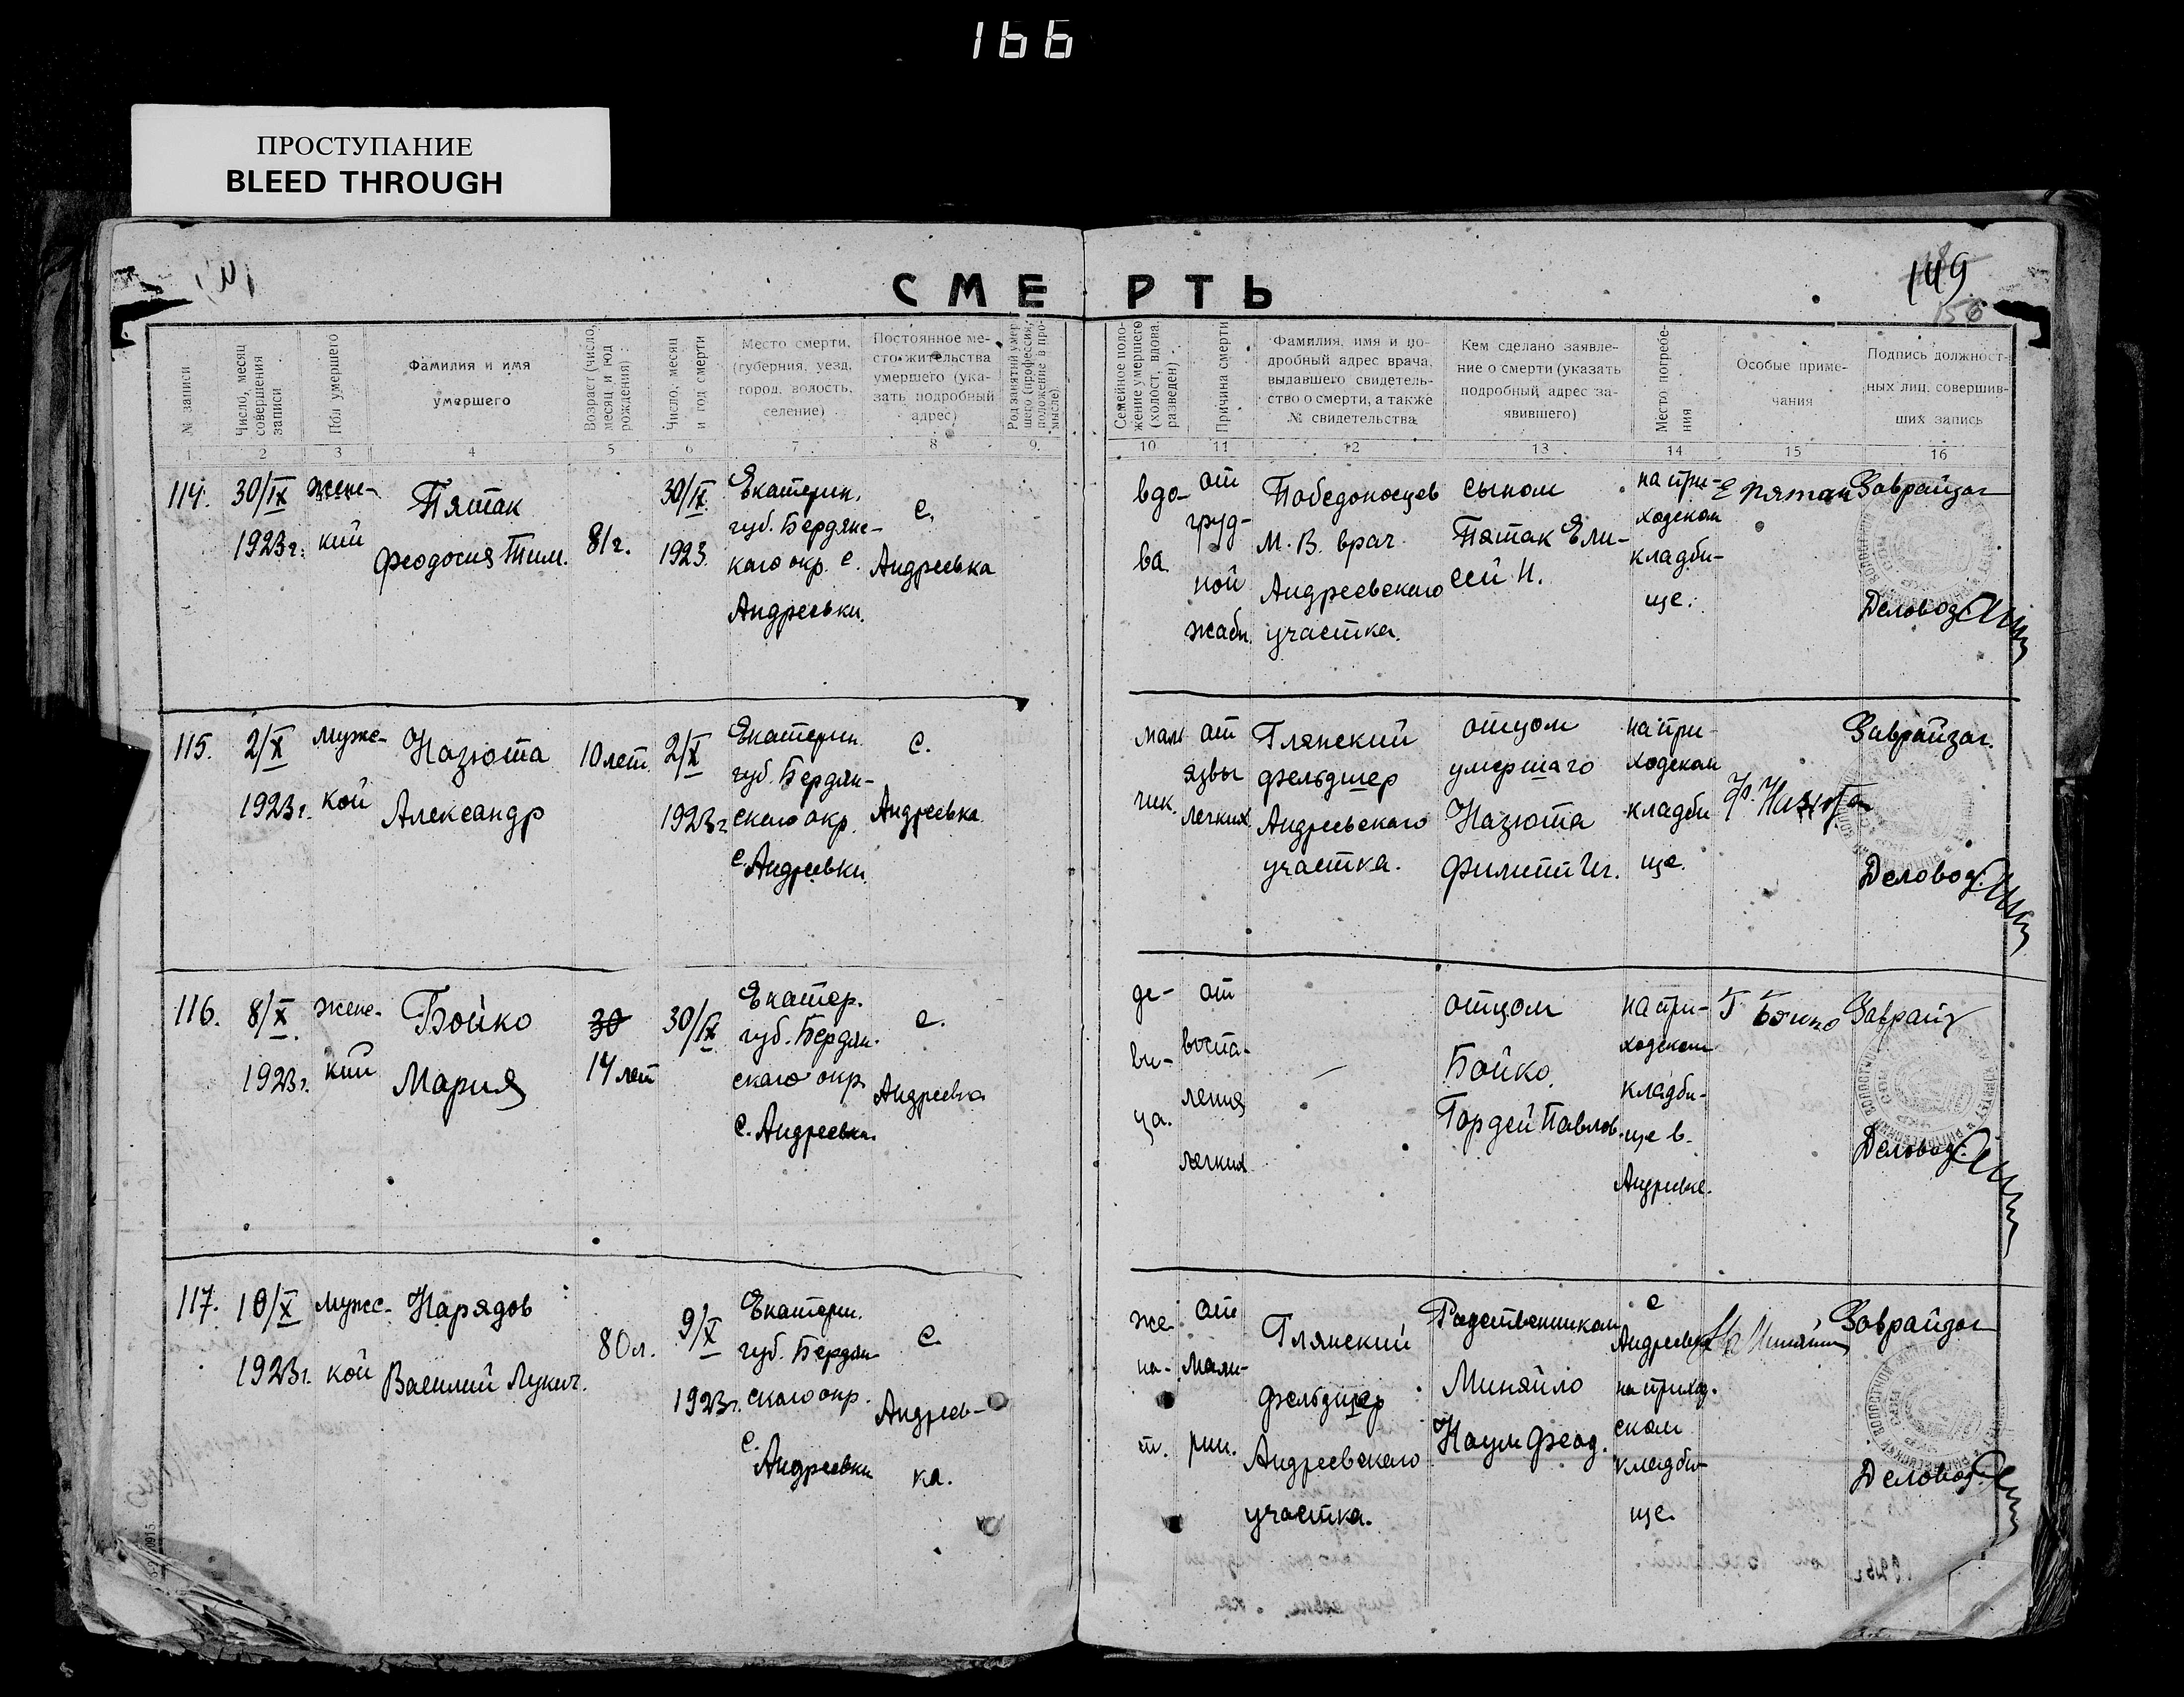 166
ПРОСТУПАНИЕ
BLEED THROUGH
149
150
СМЕРТЬ
№ записи
Число, месяц совершения записи
Пол умершего
Фамилия и имя умершего
Возраст (число, месяц и год рождения)
Число, месяц и год смерти
Место смерти, (губерния, уезд, город, волость, селение)
Постоянное место жительства умершего (указать подробный адрес)
Род занятий умершего (профессия, положение в промысле).
Семейное положение умершего (холост, вдова, разведен)
Причина смерти
Фамилия, имя и подробный адрес врача, выдавшего свидетельство о смерти, а также № свидетельства
Кем сделано заявление о смерти (указать подробный адрес заявившего)
Место погребения
Особые примечания
Подпись должностных лиц, совершивших запись
1 2 3 4 5 6 7 8 9. 10 11 12 13 14 15 16
114.
30/IX
1923 г.
женс-
кий
Пятак
Феодосия Тим.
81 г.
30/IX.
1923.
Екатерин.
губ. Бердянс-
каго окр. с.
Андреевки.
с.
Андреевка
вдо-
ва
от
груд-
ной
жабы.
Победоносцев
М. В. врач.
Андреевскаго
участка.
сыном
Пятак Ели-
сей И.
на при-
ходском
кладби-
ще.
Е Пятак
Заврайзаг
Деловод.
115.
2/X
1923 г.
мужс-
кой
Назюта
Александр
10 лет.
2/X
1923 г.
Екатерин.
губ. Бердян-
скаго окр.
с. Андреевки.
с.
Андреевка.
маль
чик.
от
язвы
легких.
Глянский
фельдшер
Андреевскаго
участка.
отцом
умершаго
Назюта
Филипп Иг.
на при-
ходском
кладби
ще.
Ф. Назюта
Заврайзаг.
Деловод.
116.
8/X.
1923 г.
женс-
кий
Бойко
Мария
30
14 лет
30/IX.
Екатер.
губ. Бердян-
скаго окр
с. Андреевки.
с.
Андреевка
де-
ви-
ца.
от
воспа-
ления
легких
—
отцом
Бойко
Гордей Павлов.
на при-
ходском
кладби-
ще в.
Андреевке.
Г Бойко
Заврайз
Деловод.
117.
10/X
1923 г.
мужс-
кой
Нарядов
Василий Лукич.
80 л.
9/X
1923 г.
Екатерин.
губ. Бердян-
скаго окр.
с.
Андреевки
с.
Андреев-
ка.
же-
на-
т.
от
маля-
рии.
Глянский
фельдшер
Андреевскаго
участка.
Родственником
Миняйло
Наум Феод.
с
Андреевка
на приход.
ском
кладби-
ще.
Заврайзаг
Деловод.